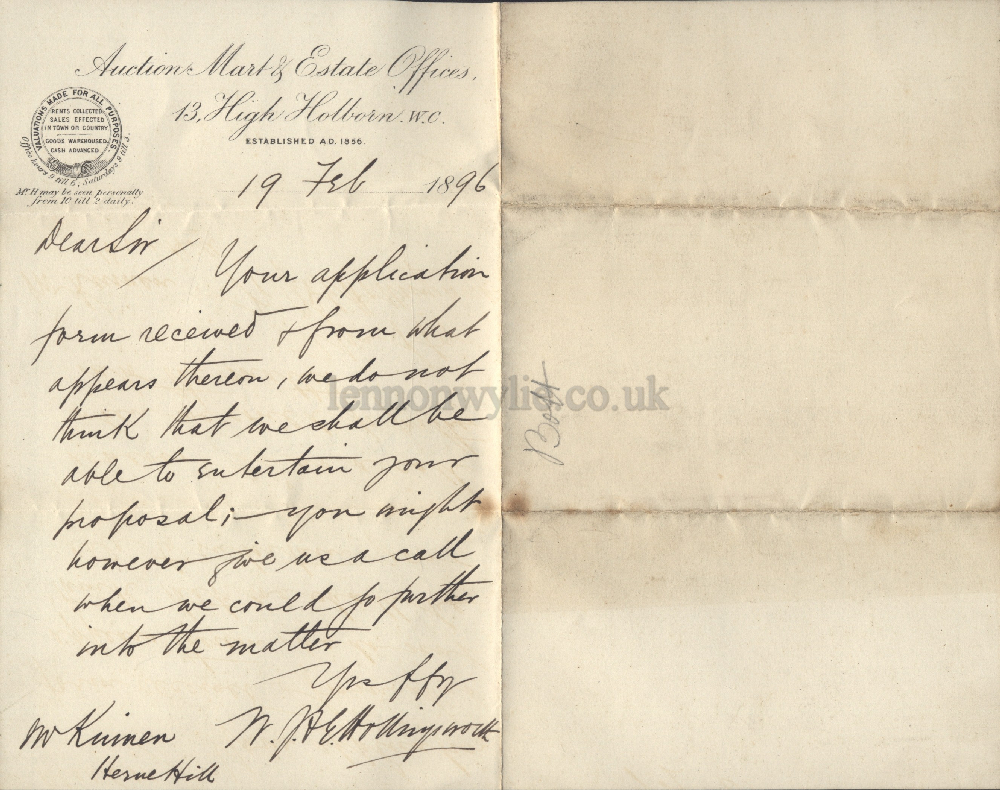 Auction Mart & Estate Offices,
13, High Holborn. W.C.
ESTABLISHED A.D. 1856.
VALUATIONS MADE FOR ALL PURPOSES.
RENTS COLLECTED
SALES EFFECTED
IN TOWN OR COUNTRY
GOODS WAREHOUSED
CASH ADVANCED
Office hours 9 till 6, Saturdays 9 till
Mr. H may be seen personally
from 10 till 2 daily.
19 Feb 1896
Dear Sir
Your application
form received & from what
appears thereon, we do not
think that we shall be
able to entertain your
proposal;— you might
however give us a call
when we could go further
into the matter
Yrs ffy
W. J. H. E. Hollingsworth
Mr Kinnen
Herne Hill
lennonwylie.co.uk